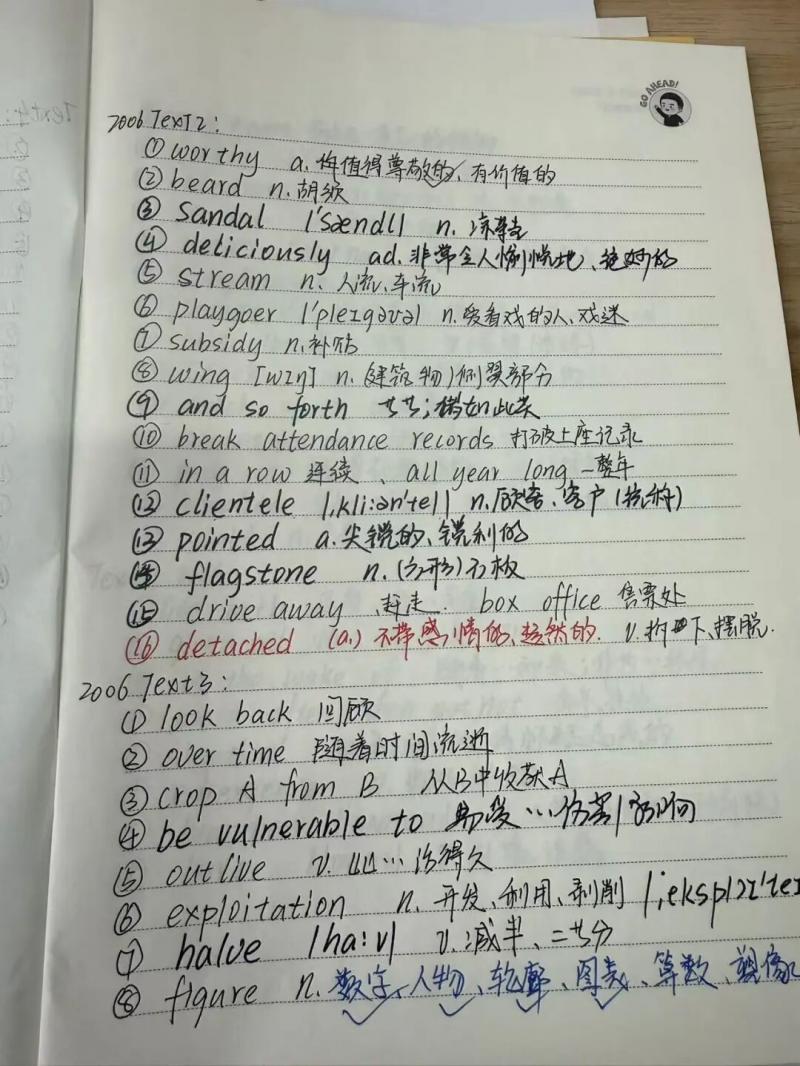 GO AHEAD!
2006 Text2:
① worthy a. 值得尊敬的、有价值的
② beard n. 胡须
③ sandal |'sændl| n. 凉鞋
④ deliciously ad. 非常令人愉悦地、绝妙的
⑤ stream n. 人流、车流
⑥ playgoer |'pleɪɡəʊə| n. 爱看戏的人、戏迷
⑦ subsidy n. 补贴
⑧ wing [wɪŋ] n. (建筑物)侧翼部分
⑨ and so forth 等等;诸如此类
⑩ break attendance records 打破上座记录
⑪ in a row 连续、all year long 一整年
⑫ clientele |ˌkliːən'tel| n. 顾客、客户(统称)
⑬ pointed a. 尖锐的、锐利的
⑭ flagstone n. (方形)石板
⑮ drive away 赶走. box office 售票处
⑯ detached (a.) 不带感情的、超然的. v. 拆下、摆脱.
2006 Text3:
① look back 回顾
② over time 随着时间流逝
③ crop A from B 从B中收获A
④ be vulnerable to 易受…伤害/影响
⑤ outlive v. 比…活得久
⑥ exploitation n. 开发、利用、剥削 |ˌeksplɔɪ'teɪ
⑦ halve |hɑːv| v. 减半、二等分
⑧ figure n. 数字、人物、轮廓、图表、算数、塑像